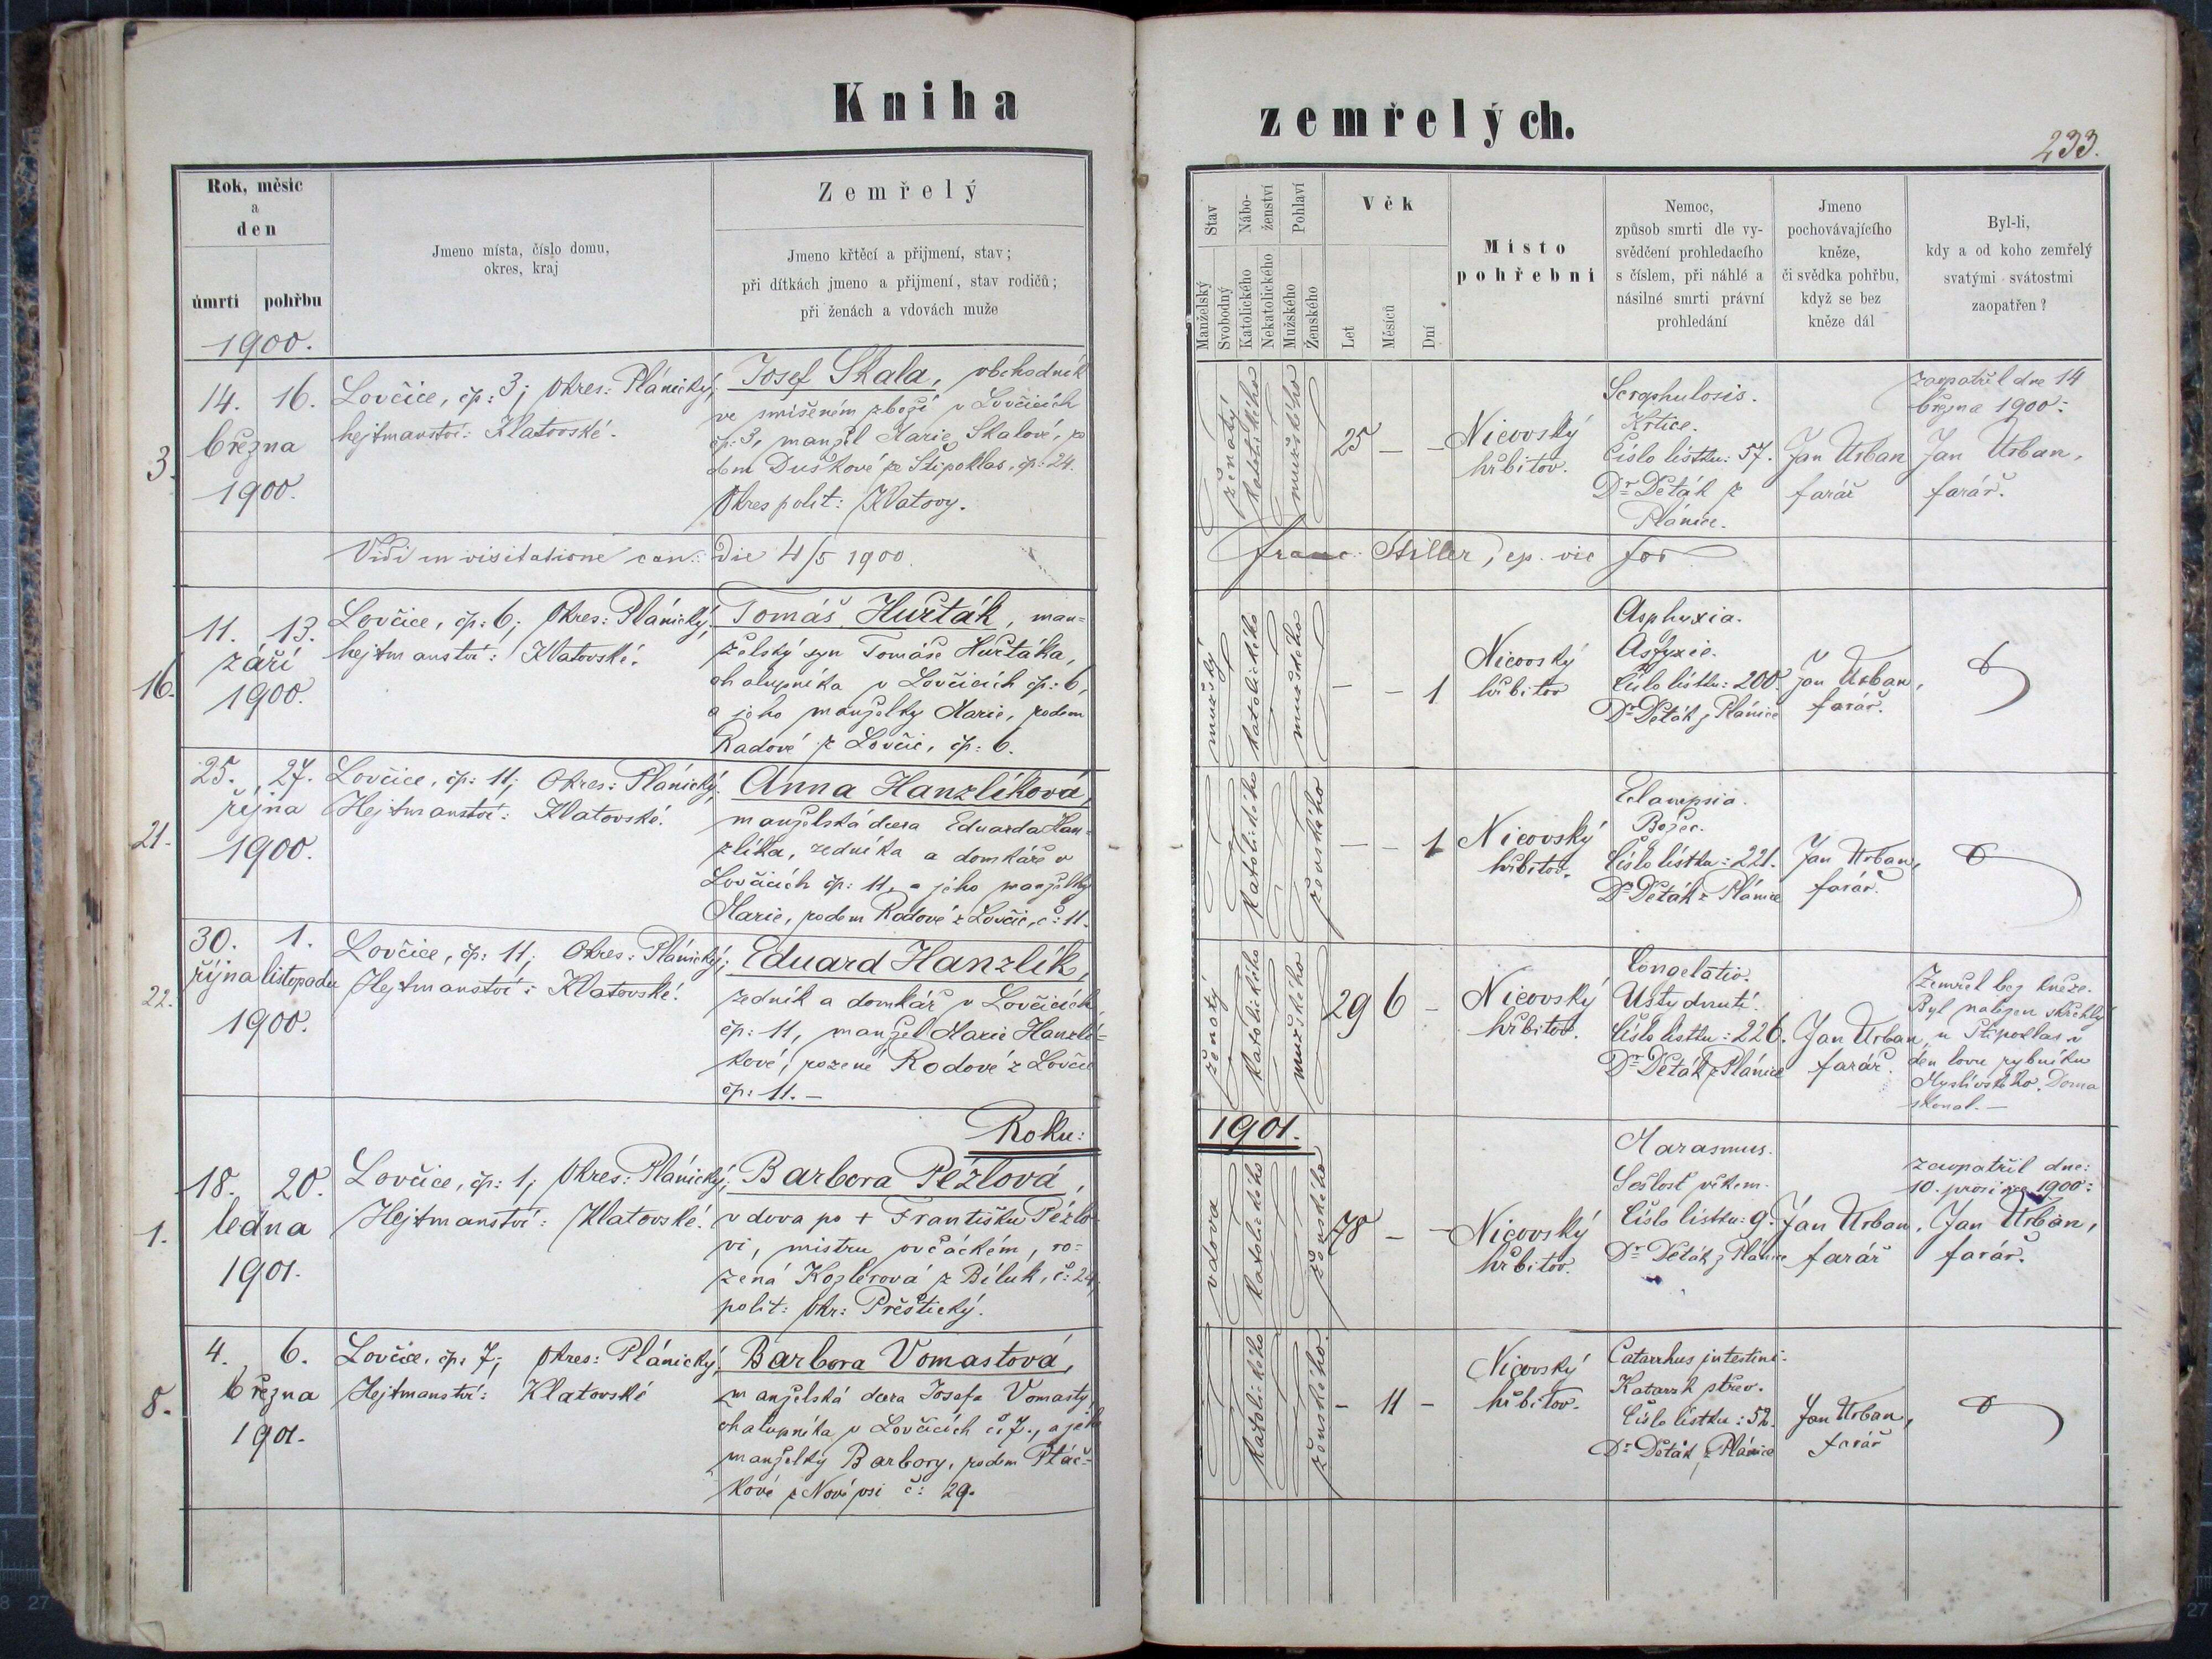 Kniha
zemřelých.
233.
Rok, měsíc
a
den
úmrtí pohřbu
Jmeno místa, číslo domu,
okres, kraj
Zemřelý
Jmeno křtěcí a přijmení, stav;
při dítkách jmeno a přijmení, stav rodičů;
při ženách a vdovách muže
Stav
Manželský
Svobodný
Nábo-
ženství
Katolického
Nekatolického
Pohlaví
Mužského
Ženského
Věk
Let
Měsíců
Dní
Místo
pohřební
Nemoc,
způsob smrti dle vy-
svědčení prohledacího
s číslem, při náhlé a
násilné smrti právní
prohledání
Jmeno
pochovávajícího
kněze,
či svědka pohřbu,
když se bez
kněze dál
Byl-li,
kdy a od koho zemřelý
svatými svátostmi
zaopatřen?
1900.
3.
14. 16.
března
1900.
Lovčice, čp: 3; Okres: Plánický;
hejtmanství: Klatovské.
Josef Skala, obchodník
ve smíšeném zboží v Lovčicích
čp: 3, manžel Marie Skalové, ro
dem Duškové ze Štipoklas, čp: 24.
Okres polit: Klatovy.
ženatý
katolického
mužského
25 — —
Nicovský
hřbitov.
Scrophulosis.
Krtice.
Číslo lístku: 57.
Dr Deták z
Plánice.
Jan Urban
farář
zaopatřil dne 14
března 1900:
Jan Urban,
farář.
Vidi in visitatione can: Die 4/5 1900.
Franc. Stiller, ep. vic for
16.
11. 13.
září
1900.
Lovčice, čp: 6; Okres: Plánický;
hejtmanství: Klatovské.
Tomáš Hurták, man=
želský syn Tomáše Hurtáka,
chalupníka v Lovčicích čp: 6,
a jeho manželky Marie, rodem
Radové z Lovčic, čp: 6.
mužský
katolického
mužského
— — 1
Nicovský
hřbitov
Asphyxia.
Asfyxie.
Číslo lístku: 200.
Dr Deták z Plánice
Jan Urban,
farář.
21.
25. 27.
října
1900.
Lovčice, čp: 11; Okres: Plánický;
Hejtmanství: Klatovské.
Anna Hanzlíková,
manželská dcera Eduarda Han=
zlíka, zedníka a domkáře v
Lovčicích čp: 11, a jeho manželky
Marie, rodem Rodové z Lovčic, č: 11.
katolického
ženského
— — 1
Nicovský
hřbitov.
Eclampsia.
Božec.
Číslo lístku: 221.
Dr Deták z Plánice
Jan Urban,
farář.
22.
30. 1.
října listopadu
1900.
Lovčice, čp: 11; Okres: Plánický;
Hejtmanství: Klatovské.
Eduard Hanzlík,
zedník a domkář v Lovčicích
čp: 11, manžel Marie Hanzlí=
kové, rozené Rodové z Lovčic
čp: 11. —
ženatý
katolického
mužského
29 6 —
Nicovský
hřbitov.
Congelatio.
Ustydnutí.
Číslo lístku: 226.
Dr Deták z Plánice
Jan Urban,
farář.
Zemřel bez kněze.
Byl nalezen skřehlý
u Štipoklas v
den lovu rybníku
Myslivského. Doma
skonal. —
Roku:
1901.
1.
18. 20.
ledna
1901.
Lovčice, čp: 1; Okres: Plánický;
Hejtmanství: Klatovské.
Barbora Pézlová,
vdova po + Františku Pézlo-
vi, mistru ovčáckém, ro=
zená Kozlerová z Běluk, č: 24,
polit: Okr: Přeštický.
vdova
katolického
ženského
78 — —
Nicovský
hřbitov.
Marasmus.
Sešlost věkem.
Číslo lístku: 9.
Dr Deták z Plánice
Jan Urban,
farář
zaopatřil dne:
10. prosince 1900:
Jan Urban,
farář.
8.
4. 6.
března
1901.
Lovčice, čp: 7; Okres: Plánický;
Hejtmanství: Klatovské
Barbora Vomastová,
manželská dcera Josefa Vomasty,
chalupníka v Lovčicích č: 7., a jeho
manželky Barbory, rodem Ptáč=
kové z Nové vsi č: 29.
katolického
ženského.
— 11 —
Nicovský
hřbitov.
Catarrhus intestini.
Katarrh střev.
Číslo lístku: 52.
Dr Deták z Plánice
Jan Urban,
farář